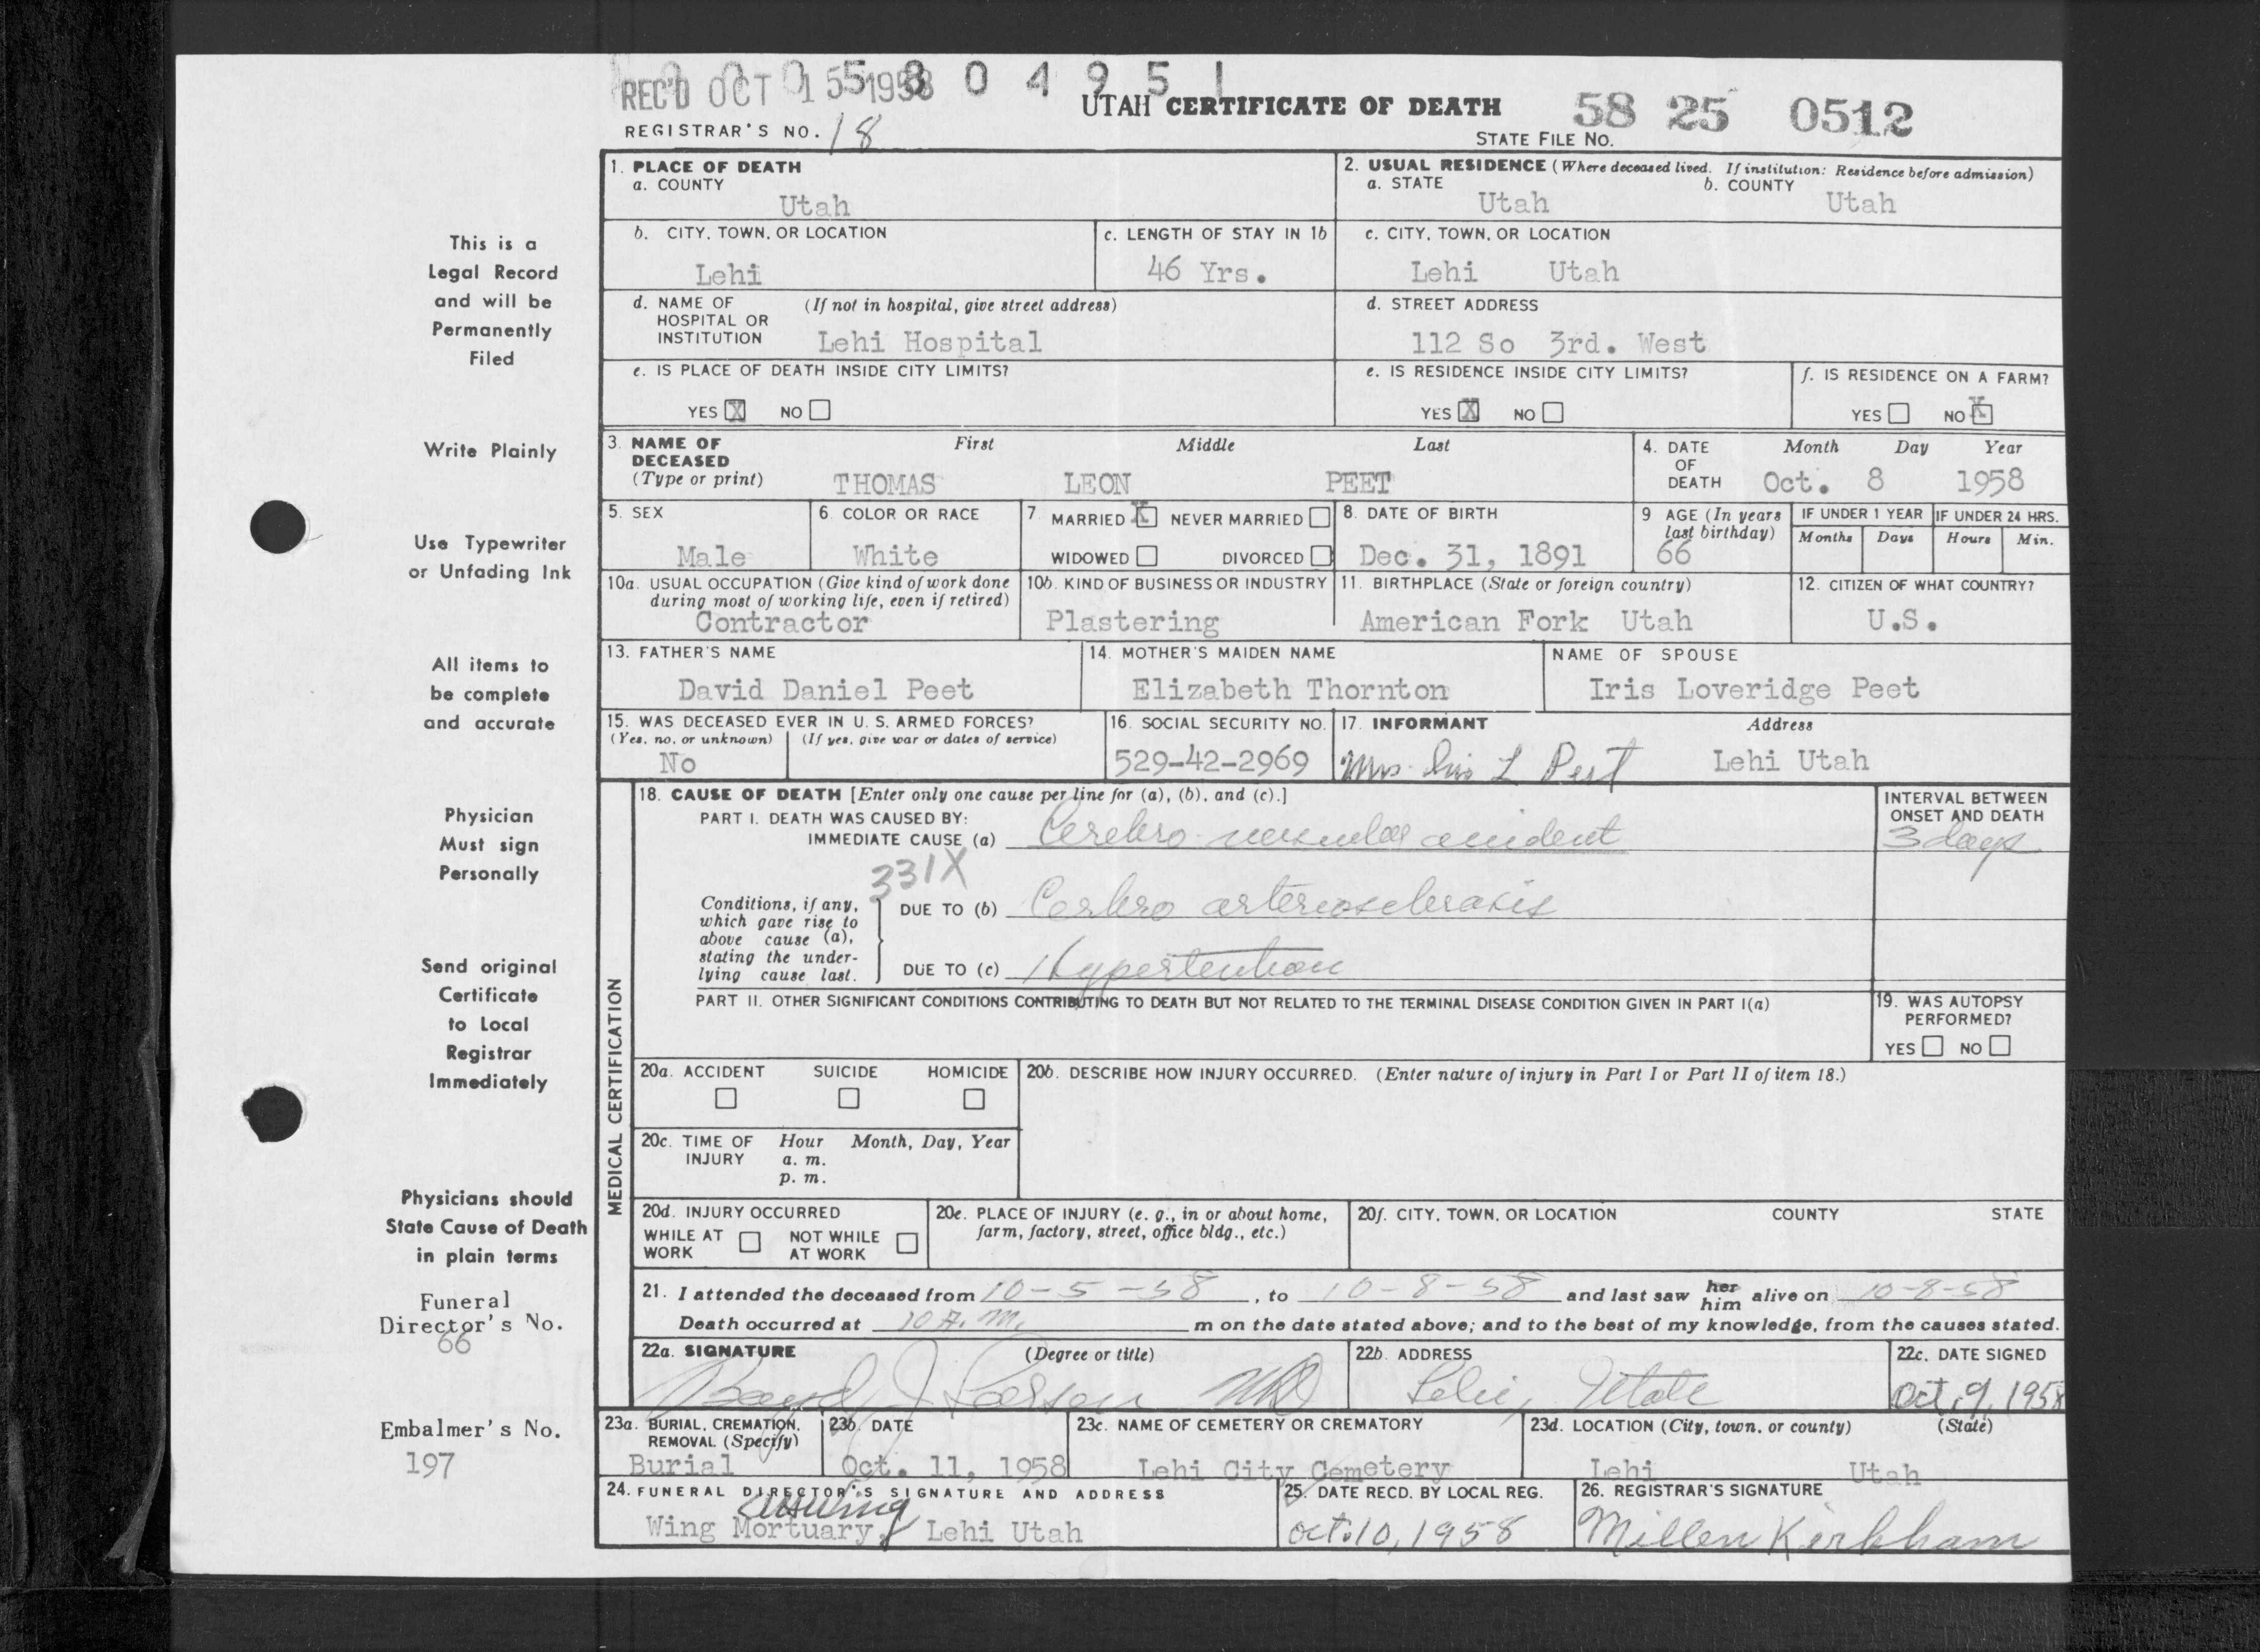 REC'D OCT 15 1958
0 4 9 5 1
UTAH CERTIFICATE OF DEATH
58 25 0512
REGISTRAR'S NO. 18
STATE FILE NO.
1. PLACE OF DEATH
a. COUNTY
Utah
2. USUAL RESIDENCE (Where deceased lived. If institution: Residence before admission)
a. STATE
Utah
b. COUNTY
Utah
b. CITY, TOWN, OR LOCATION
Lehi
c. LENGTH OF STAY IN 1b
46 Yrs.
c. CITY, TOWN, OR LOCATION
Lehi Utah
d. NAME OF HOSPITAL OR INSTITUTION (If not in hospital, give street address)
Lehi Hospital
d. STREET ADDRESS
112 So 3rd. West
e. IS PLACE OF DEATH INSIDE CITY LIMITS?
YES X NO
e. IS RESIDENCE INSIDE CITY LIMITS?
YES X NO
f. IS RESIDENCE ON A FARM?
YES NO X
3. NAME OF DECEASED (Type or print)
First Middle Last
THOMAS LEON PEET
4. DATE OF DEATH
Month Day Year
Oct. 8 1958
5. SEX
Male
6. COLOR OR RACE
White
7. MARRIED X NEVER MARRIED
WIDOWED DIVORCED
8. DATE OF BIRTH
Dec. 31, 1891
9 AGE (In years last birthday)
66
IF UNDER 1 YEAR
Months Days
IF UNDER 24 HRS.
Hours Min.
10a. USUAL OCCUPATION (Give kind of work done during most of working life, even if retired)
Contractor
10b. KIND OF BUSINESS OR INDUSTRY
Plastering
11. BIRTHPLACE (State or foreign country)
American Fork Utah
12. CITIZEN OF WHAT COUNTRY?
U.S.
13. FATHER'S NAME
David Daniel Peet
14. MOTHER'S MAIDEN NAME
Elizabeth Thornton
NAME OF SPOUSE
Iris Loveridge Peet
15. WAS DECEASED EVER IN U. S. ARMED FORCES?
(Yes, no, or unknown) (If yes, give war or dates of service)
No
16. SOCIAL SECURITY NO.
529-42-2969
17. INFORMANT
Mrs. Iris L Peet
Address
Lehi Utah
MEDICAL CERTIFICATION
18. CAUSE OF DEATH [Enter only one cause per line for (a), (b), and (c).]
PART I. DEATH WAS CAUSED BY:
IMMEDIATE CAUSE (a) Cerebro-vascular accident
INTERVAL BETWEEN ONSET AND DEATH
3 days
331X
Conditions, if any, which gave rise to above cause (a), stating the underlying cause last.
DUE TO (b) Cerbro arteriosclerosis
DUE TO (c) Hypertention
PART II. OTHER SIGNIFICANT CONDITIONS CONTRIBUTING TO DEATH BUT NOT RELATED TO THE TERMINAL DISEASE CONDITION GIVEN IN PART I(a)
19. WAS AUTOPSY PERFORMED?
YES NO
20a. ACCIDENT SUICIDE HOMICIDE
20b. DESCRIBE HOW INJURY OCCURRED. (Enter nature of injury in Part I or Part II of item 18.)
20c. TIME OF INJURY
Hour Month, Day, Year
a. m.
p. m.
20d. INJURY OCCURRED
WHILE AT WORK NOT WHILE AT WORK
20e. PLACE OF INJURY (e. g., in or about home, farm, factory, street, office bldg., etc.)
20f. CITY, TOWN, OR LOCATION COUNTY STATE
21. I attended the deceased from 10-5-58, to 10-8-58 and last saw her him alive on 10-8-58
Death occurred at 10 A.M. m on the date stated above; and to the best of my knowledge, from the causes stated.
22a. SIGNATURE (Degree or title)
Boyd J Larson MD
22b. ADDRESS
Lehi, Utah
22c. DATE SIGNED
Oct. 9, 1958
23a. BURIAL, CREMATION, REMOVAL (Specify)
Burial
23b. DATE
Oct. 11, 1958
23c. NAME OF CEMETERY OR CREMATORY
Lehi City Cemetery
23d. LOCATION (City, town, or county) (State)
Lehi Utah
24. FUNERAL DIRECTOR'S SIGNATURE AND ADDRESS
Wing Mortuary, Lehi Utah
25. DATE RECD. BY LOCAL REG.
Oct. 10, 1958
26. REGISTRAR'S SIGNATURE
Millen Kirkham
This is a
Legal Record
and will be
Permanently
Filed
Write Plainly
Use Typewriter
or Unfading Ink
All items to
be complete
and accurate
Physician
Must sign
Personally
Send original
Certificate
to Local
Registrar
Immediately
Physicians should
State Cause of Death
in plain terms
Funeral
Director's No.
66
Embalmer's No.
197